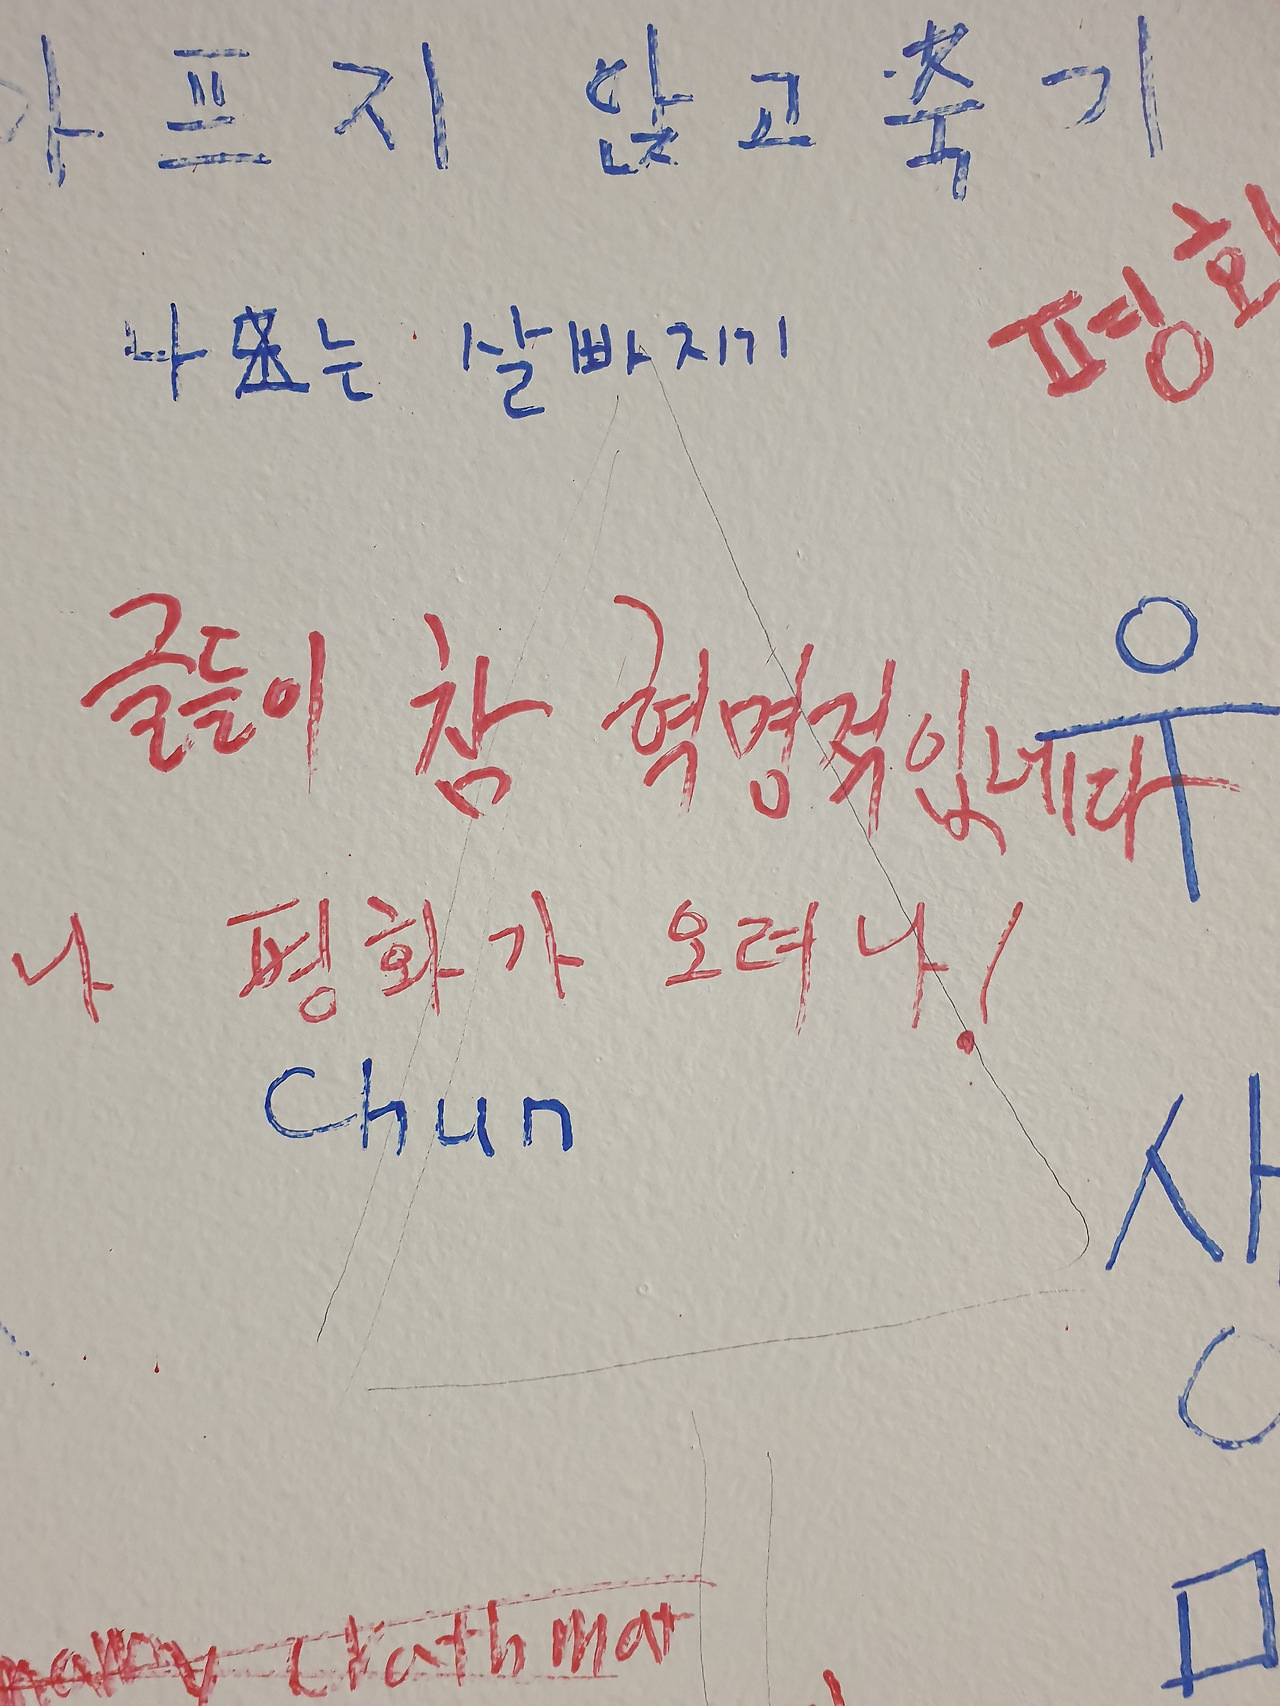 가프지 않고 죽기
나는 살빠지기
평화
글들이 참 혁명적입네다
우
나 평화가 오려나!
Chun
상
ㅁ